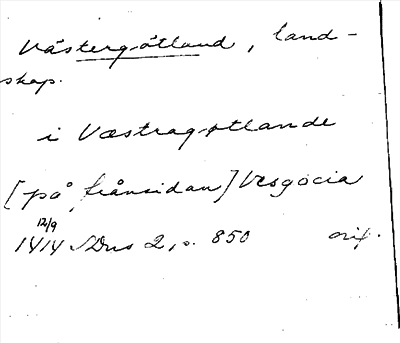 Västergötland, land-
skap.
i Væstragøtlande
[på frånsidan] Vesgocia
12/9
1414 SDns 2, s. 850 orig.